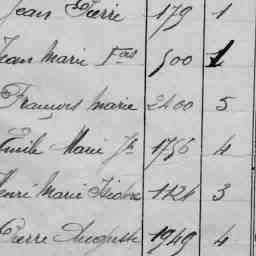 Jean Pierre 179 1
Jean Marie Fçois 500 1
François Marie 2400 5
Emile Marie Jh 1756 4
Henri Marie Isidore 1124 3
Pierre Auguste 1949 4